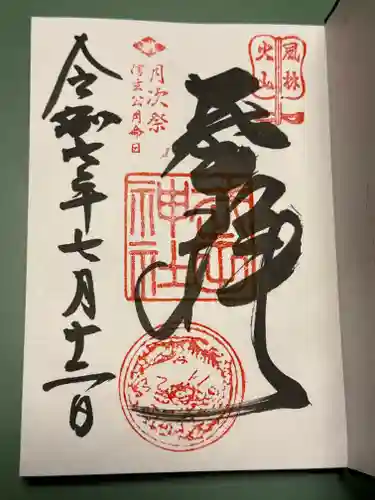 風林
火山
月次祭
信玄公月命日
拝
武田
神社
令和六年七月十二日